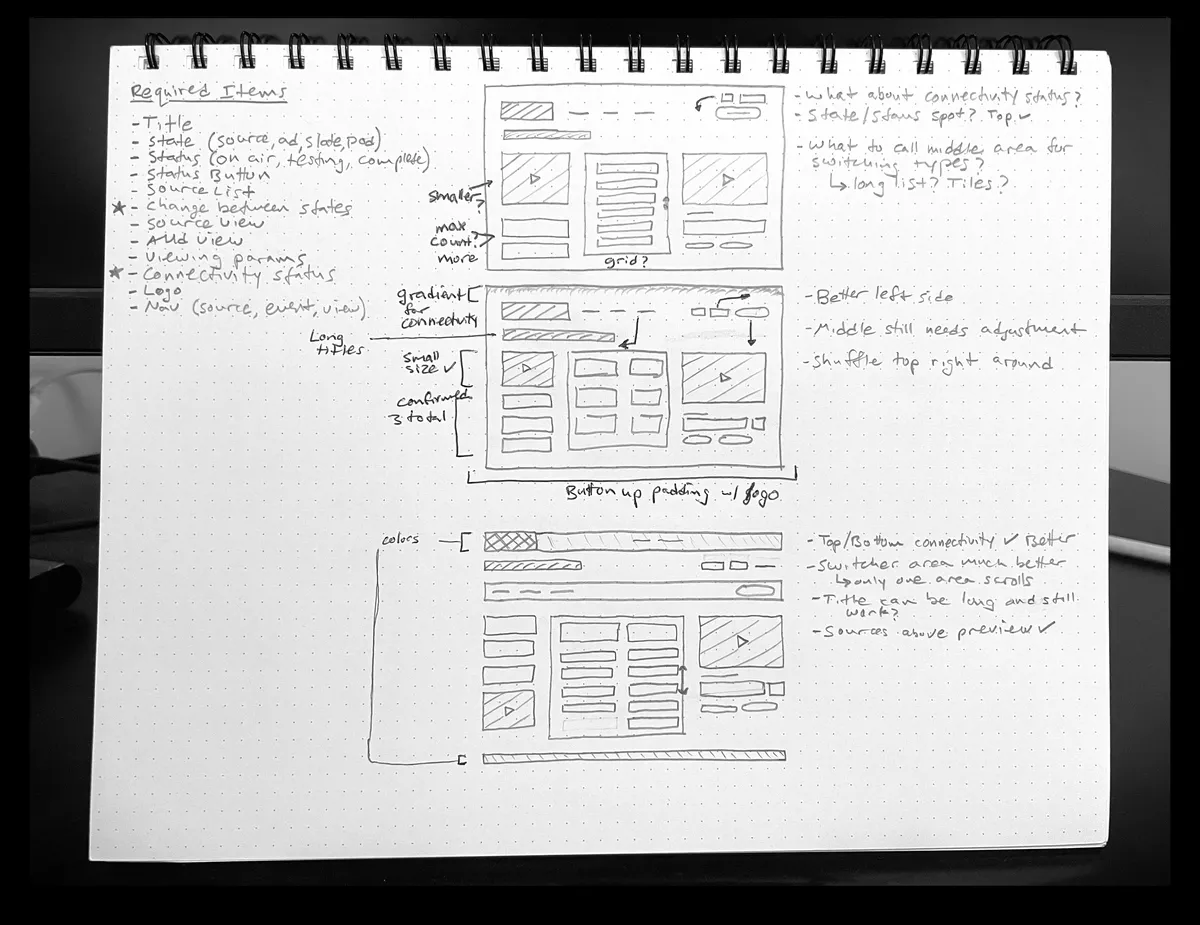 Required Items
- Title
- State (source, ad, slate, pod)
- Status (on air, testing, complete)
- Status Button
- Source List
★ - Change between states
- Source View
- Add View
- Viewing params
★ - Connectivity status
- Logo
- Nav (source, event, view)
smaller?
max
count?
more
grid?
- What about connectivity status?
- State/Status spot? Top ✓
- What to call middle area for
switching types?
↳ long list? Tiles?
gradient
for
connectivity
Long
titles
small
size ✓
confirmed
3 total
Button up padding w/ logo
- Better left side
- Middle still needs adjustment
- Shuffle top right around
colors
- Top/Bottom connectivity ✓ Better
- Switcher area much better
↳ only one area scrolls
- Title can be long and still
work?
- Sources above preview ✓